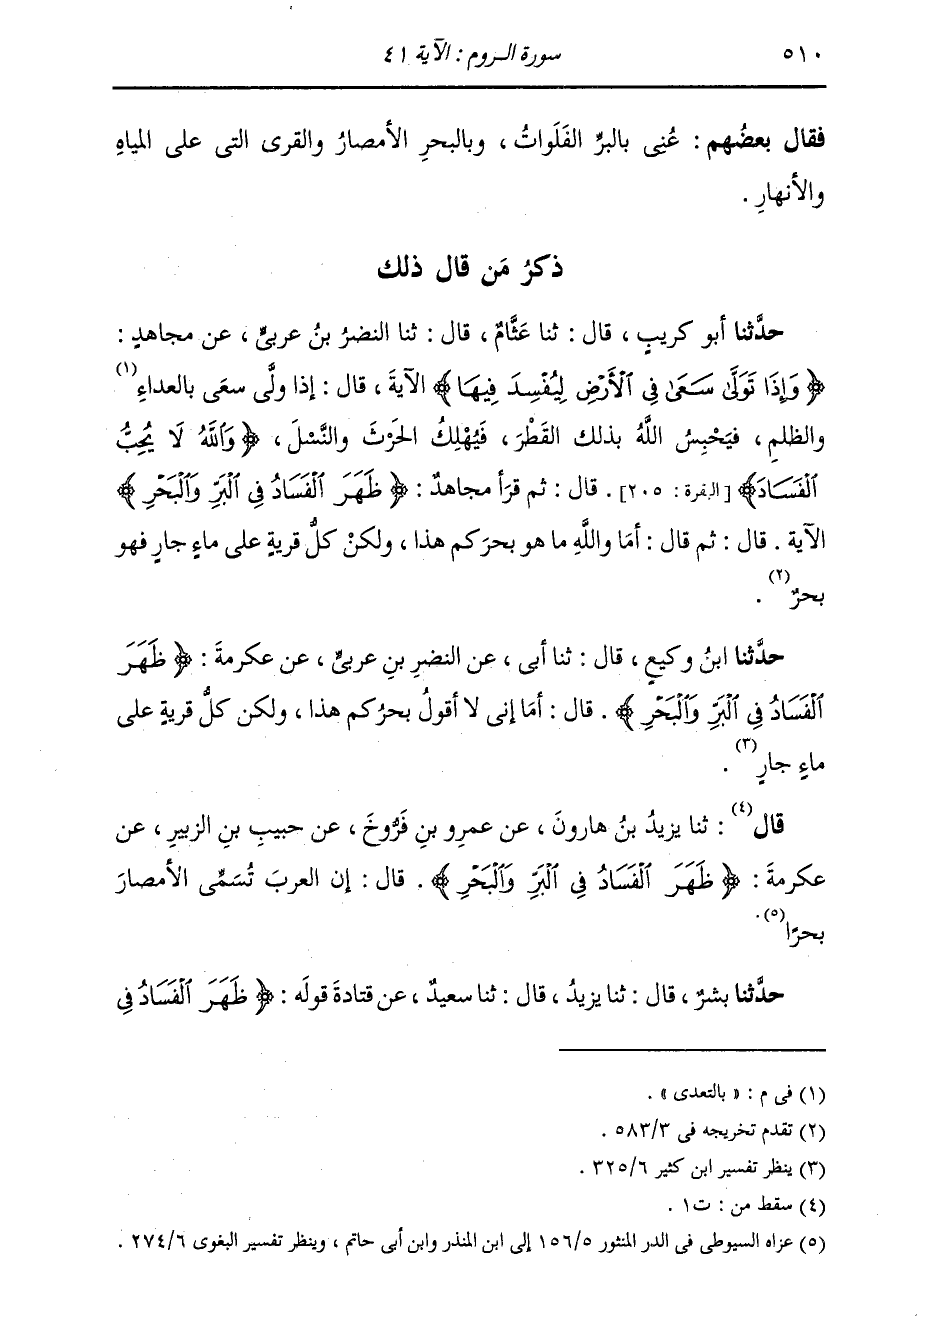 ٥١٠ سورة الروم : الآية ٤١
فقال بعضُهم : عُنِى بالبرِّ الفَلَواتُ ، وبالبحرِ الأمصارُ والقرى التى على المياهِ
والأنهارِ .
ذكرُ مَن قال ذلك
حدَّثنا أبو كريبٍ ، قال : ثنا عَثَّامٌ ، قال : ثنا النضرُ بنُ عربىٍّ ، عن مجاهدٍ :
﴿ وَإِذَا تَوَلَّىٰ سَعَىٰ فِى ٱلْأَرْضِ لِيُفْسِدَ فِيهَا ﴾ الآيةَ ، قال : إذا ولَّى سعَى بالعداءِ (١)
والظلمِ ، فيَحْبِسُ اللَّهُ بذلك القَطْرَ ، فَيُهْلِكُ الحَرْثَ والنَّسْلَ ، ﴿ وَٱللَّهُ لَا يُحِبُّ
ٱلْفَسَادَ ﴾ [البقرة : ٢٠٥] . قال : ثم قرَأ مجاهدٌ : ﴿ ظَهَرَ ٱلْفَسَادُ فِى ٱلْبَرِّ وَٱلْبَحْرِ ﴾
الآية . قال : ثم قال : أمَا واللَّهِ ما هو بحرَكم هذا ، ولكنْ كلُّ قريةٍ على ماءٍ جارٍ فهو
بحرٌ (٢) .
حدَّثنا ابنُ وكيعٍ ، قال : ثنا أبى ، عن النضرِ بنِ عربىٍّ ، عن عكرمةَ : ﴿ ظَهَرَ
ٱلْفَسَادُ فِى ٱلْبَرِّ وَٱلْبَحْرِ ﴾ . قال : أمَا إنى لا أقولُ بحرُكم هذا ، ولكن كلُّ قريةٍ على
ماءٍ جارٍ (٣) .
قال (٤) : ثنا يزيدُ بنُ هارونَ ، عن عمرِو بنِ فَرُّوخَ ، عن حبيبِ بنِ الزبيرِ ، عن
عكرمةَ : ﴿ ظَهَرَ ٱلْفَسَادُ فِى ٱلْبَرِّ وَٱلْبَحْرِ ﴾ . قال : إن العربَ تُسَمِّى الأمصارَ
بحرًا (٥) .
حدَّثنا بشرٌ ، قال : ثنا يزيدُ ، قال : ثنا سعيدٌ ، عن قتادةَ قولَه : ﴿ ظَهَرَ ٱلْفَسَادُ فِى
(١) فى م : « بالتعدى » .
(٢) تقدم تخريجه فى ٥٨٣/٣ .
(٣) ينظر تفسير ابن كثير ٣٢٥/٦ .
(٤) سقط من : ت١ .
(٥) عزاه السيوطى فى الدر المنثور ١٥٦/٥ إلى ابن المنذر وابن أبى حاتم ، وينظر تفسير البغوى ٢٧٤/٦ .